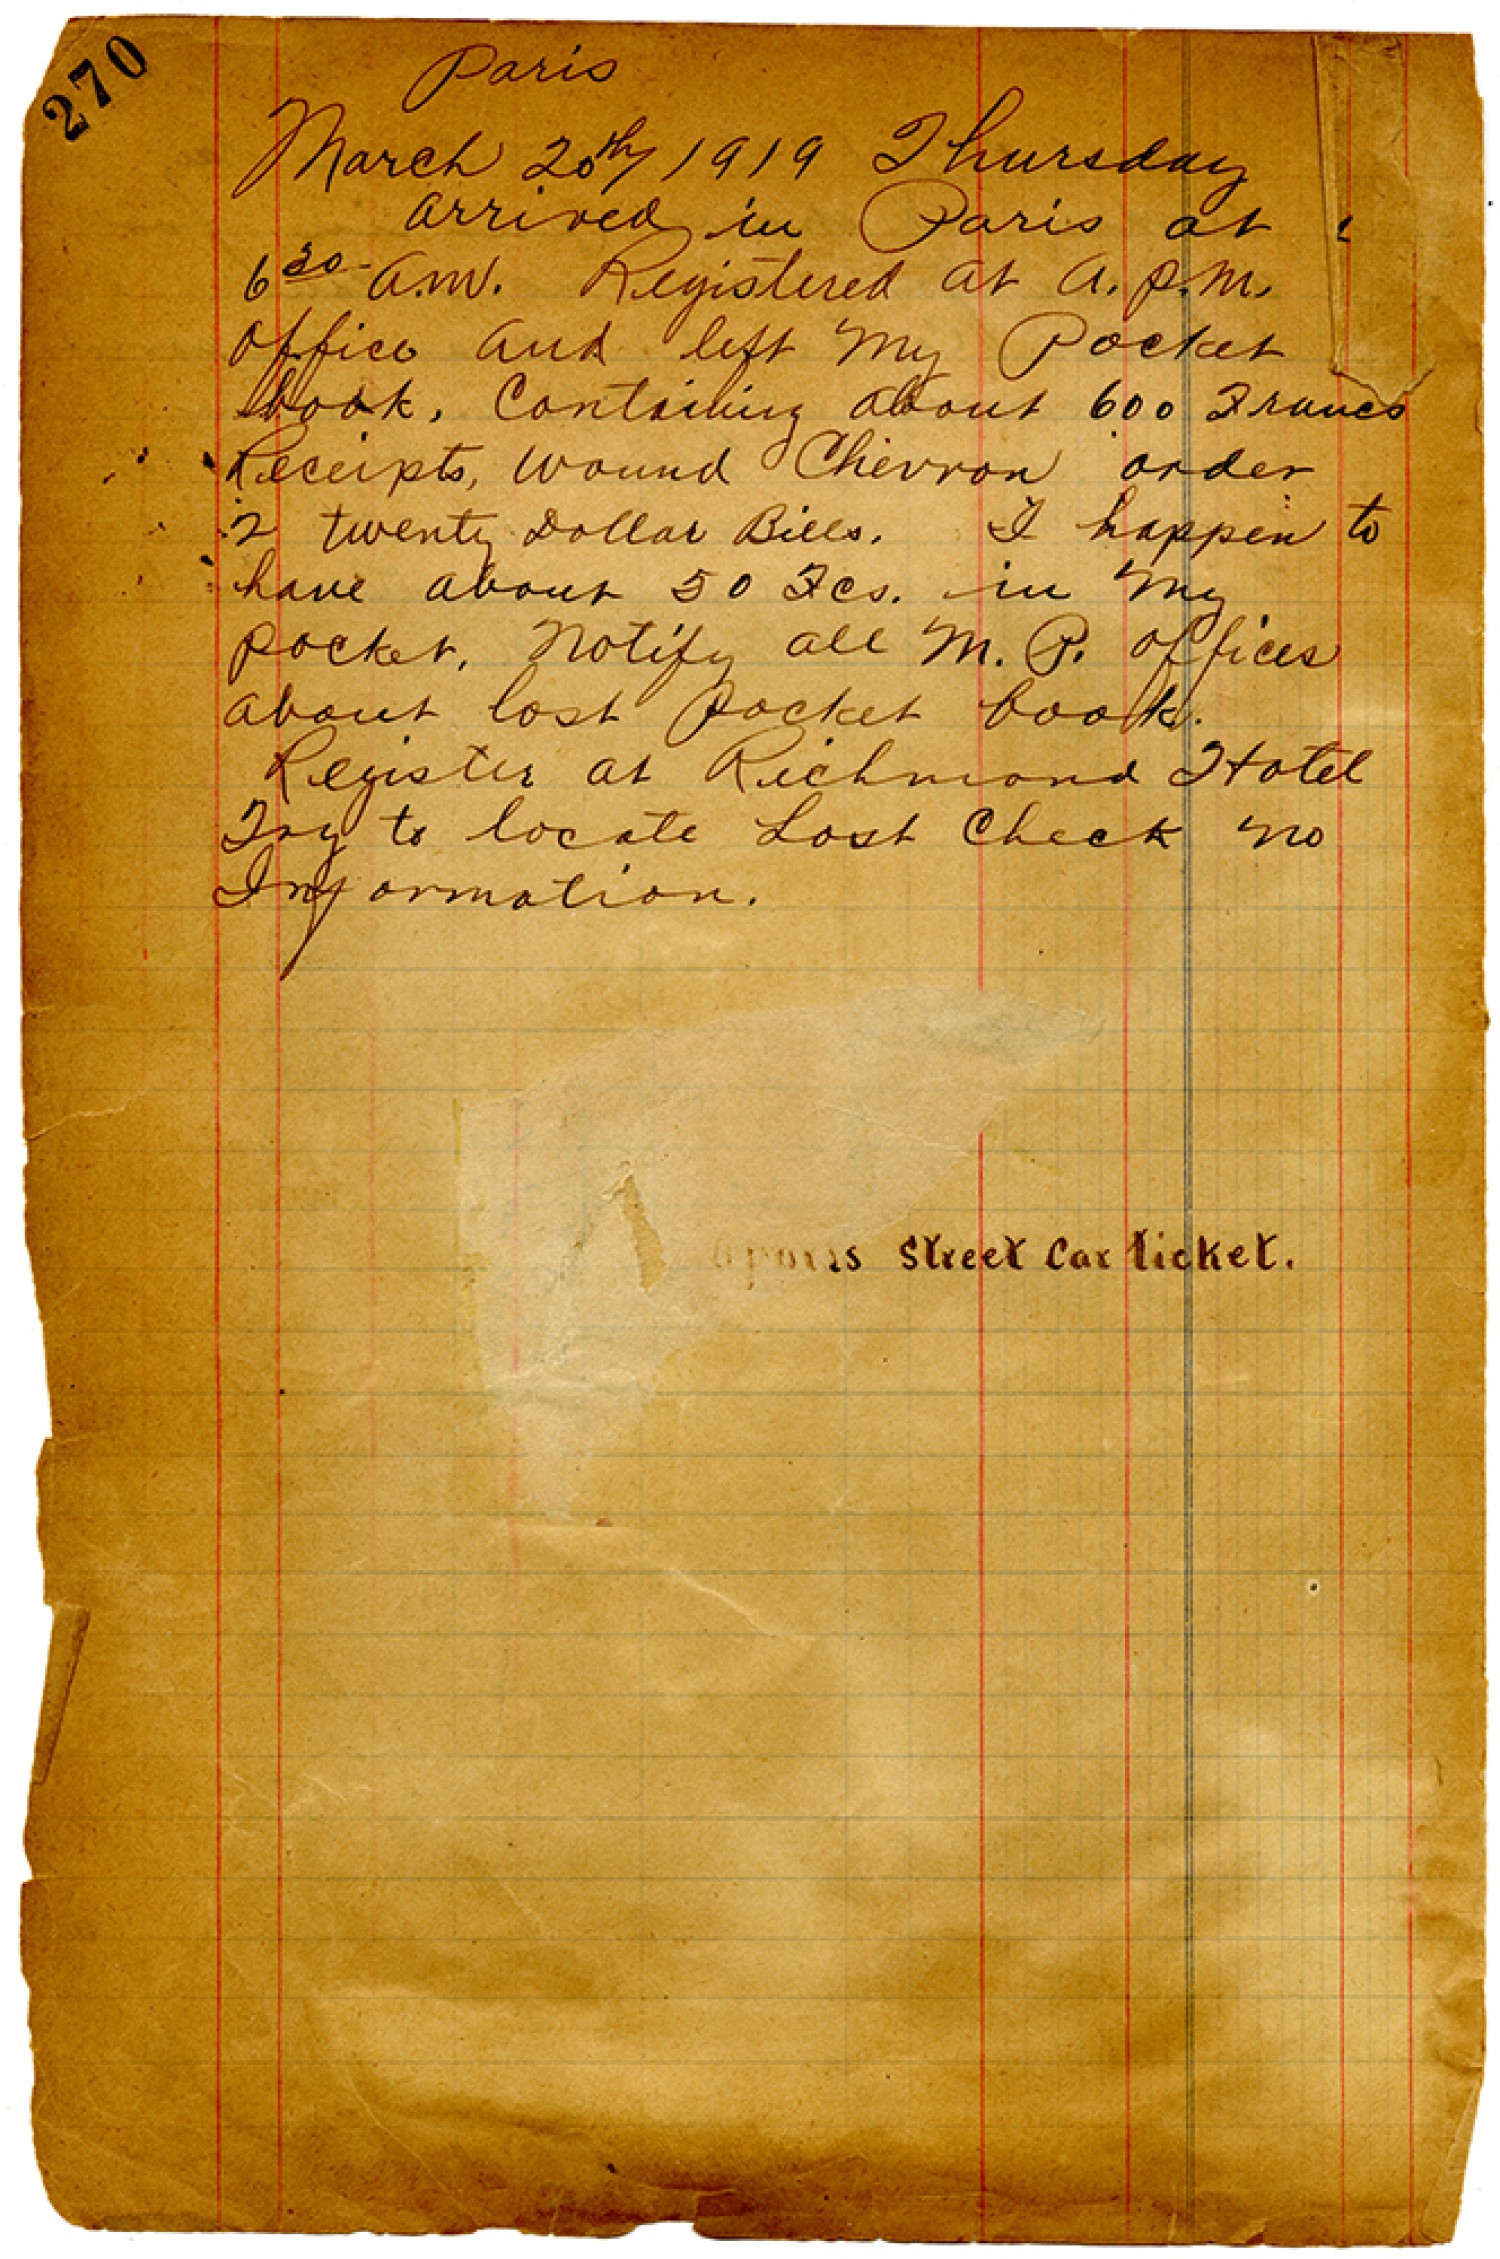 270
Paris
March 20th, 1919 Thursday
arrived in Paris at
6 30 A.M. Registered at A.P.M.
office and left My Pocket
book, Containing about 600 Francs
Receipts, Wound Chevron order
2 twenty Dollar Bills. I happen to
have about 50 Fcs. in My
pocket. Notify all M. P. offices
about lost Pocket book.
Register at Richmond Hotel
Try to locate Lost Check no
Information.
Street Car ticket.